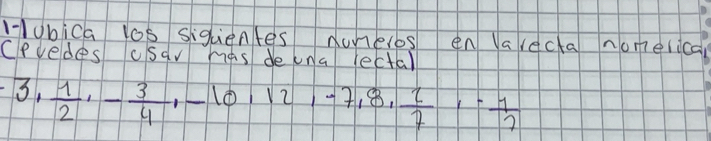 1-Ubica los siguientes numeros en la recta numerica
(Puedes usar mas de una recta)
-3, 1/2, -3/4, -10, 12, -7, 8, 2/7, -1/2